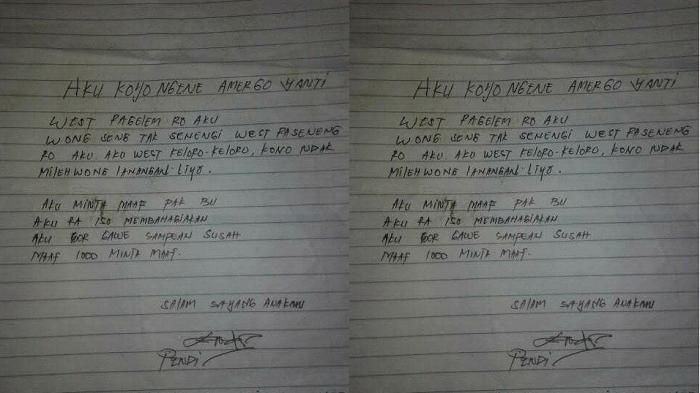 AKU KOYO NGENE AMERGO YANTI
WEST PAGELEM RO AKU
WONG SENE TAK SENENGI WEST PASENENG
RO AKU. AKU WEST KELORO-KELORO, KONO NDAK
MILEH WONE LANANGAN LIYO.
AKU MINTA MAAF PAK BU
AKU RA ISO MEMBAHAGIAKAN
AKU GOR GAWE SAMPEAN SUSAH
MAAF 1000 MINTA MAAF.
SALAM SAYANG ANAKAMU
PENDI
AKU KOYO NGENE AMERGO YANTI
WEST PAGELEM RO AKU
WONG SENE TAK SENENGI WEST PASENENG
RO AKU. AKU WEST KELORO-KELORO, KONO NDAK
MILEH WONE LANANGAN LIYO.
AKU MINTA MAAF PAK BU
AKU RA ISO MEMBAHAGIAKAN
AKU GOR GAWE SAMPEAN SUSAH
MAAF 1000 MINTA MAAF.
SALAM SAYANG ANAKAMU
PENDI